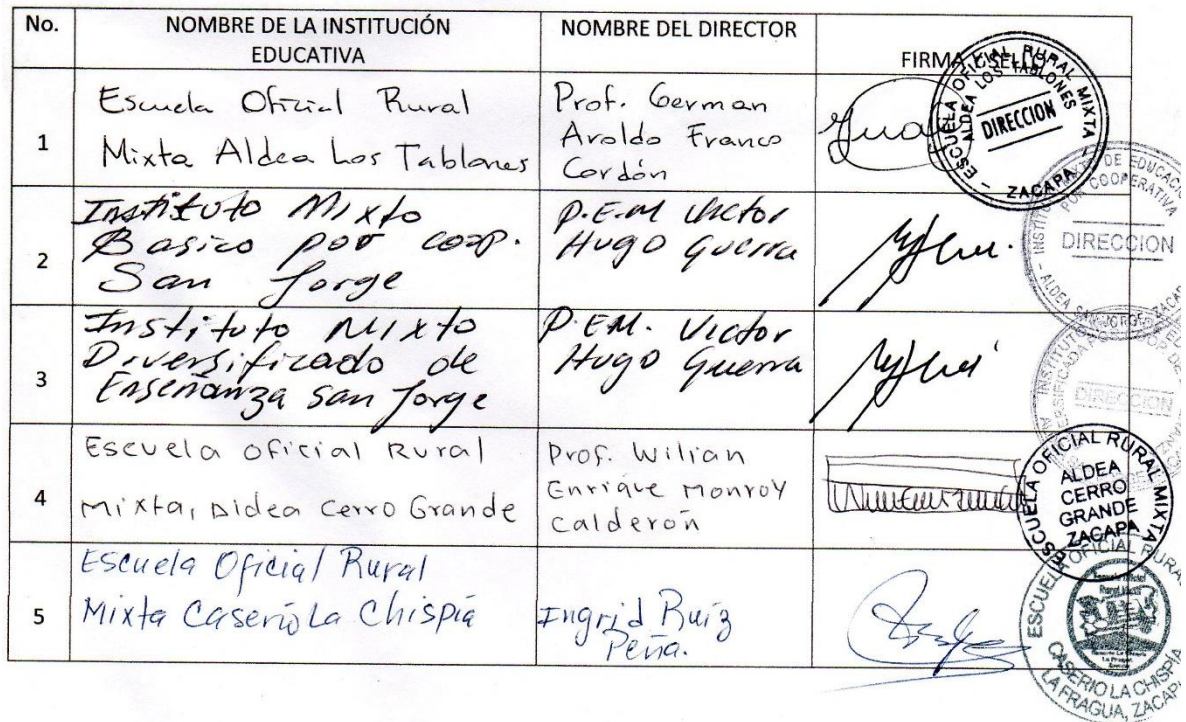 No.
NOMBRE DE LA INSTITUCIÓN
EDUCATIVA
NOMBRE DEL DIRECTOR
FIRMA Y SELLO
1
Escuela Oficial Rural
Mixta Aldea Los Tablones
Prof. German
Aroldo Franco
Cordón
ESCUELA OFICIAL RURAL MIXTA
ALDEA LOS TABLONES
DIRECCION
ZACAPA
2
Instituto Mixto
Basico por coop.
San Jorge
P.E.M Victor
Hugo Guerra
DE EDUCACION
POR COOPERATIVA
DIRECCION
ALDEA SAN JORGE ZACAPA
3
Instituto Mixto
Diversificado de
Enseñanza San Jorge
P.E.M. Victor
Hugo Guerra
DIRECCION
4
Escuela oficial Rural
Mixta, Aldea Cerro Grande
Prof. Wilian
Enrique Monroy
Calderón
ESCUELA OFICIAL RURAL MIXTA
ALDEA
CERRO
GRANDE
ZACAPA
5
Escuela Oficial Rural
Mixta Caserío La Chispia
Ingrid Ruiz
Peña.
ESCUELA OFICIAL RURAL
CASERIO LA CHISPÍA
LA FRAGUA, ZACAPA